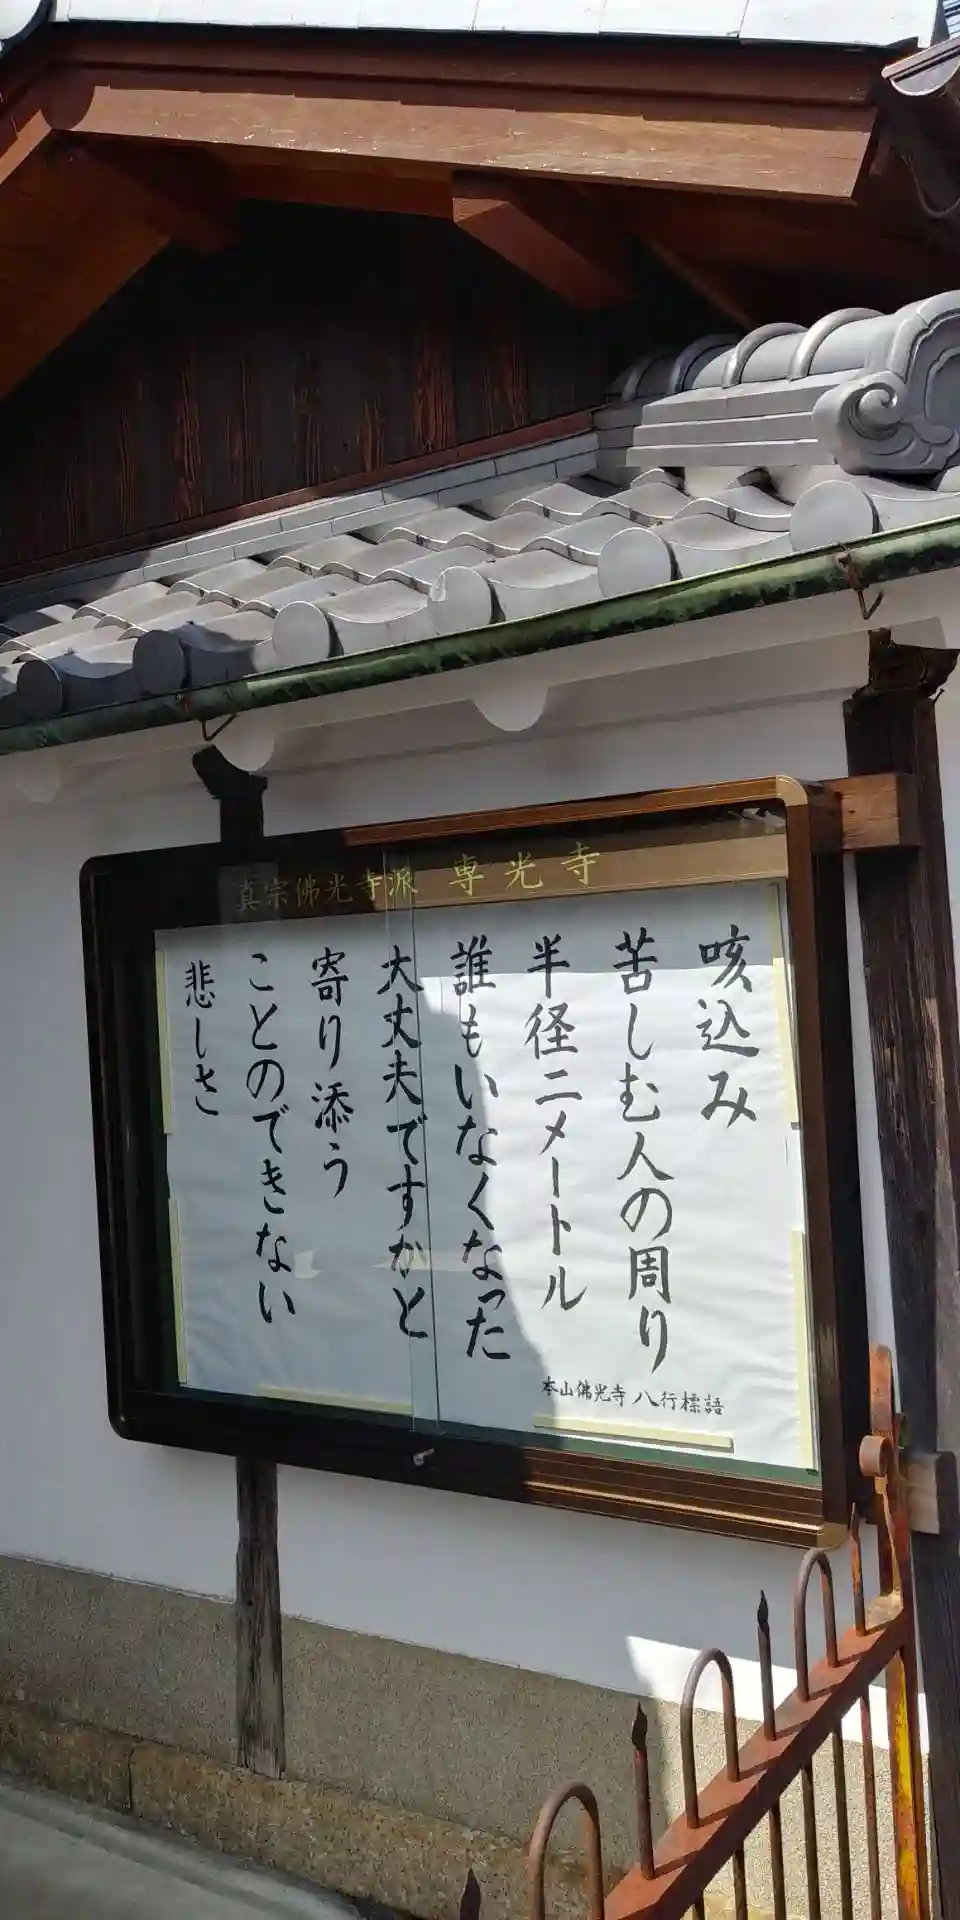 真宗佛光寺派 専光寺
咳込み
苦しむ人の周り
半径二メートル
誰もいなくなった
大丈夫ですかと
寄り添う
ことのできない
悲しさ
本山佛光寺 八行標語